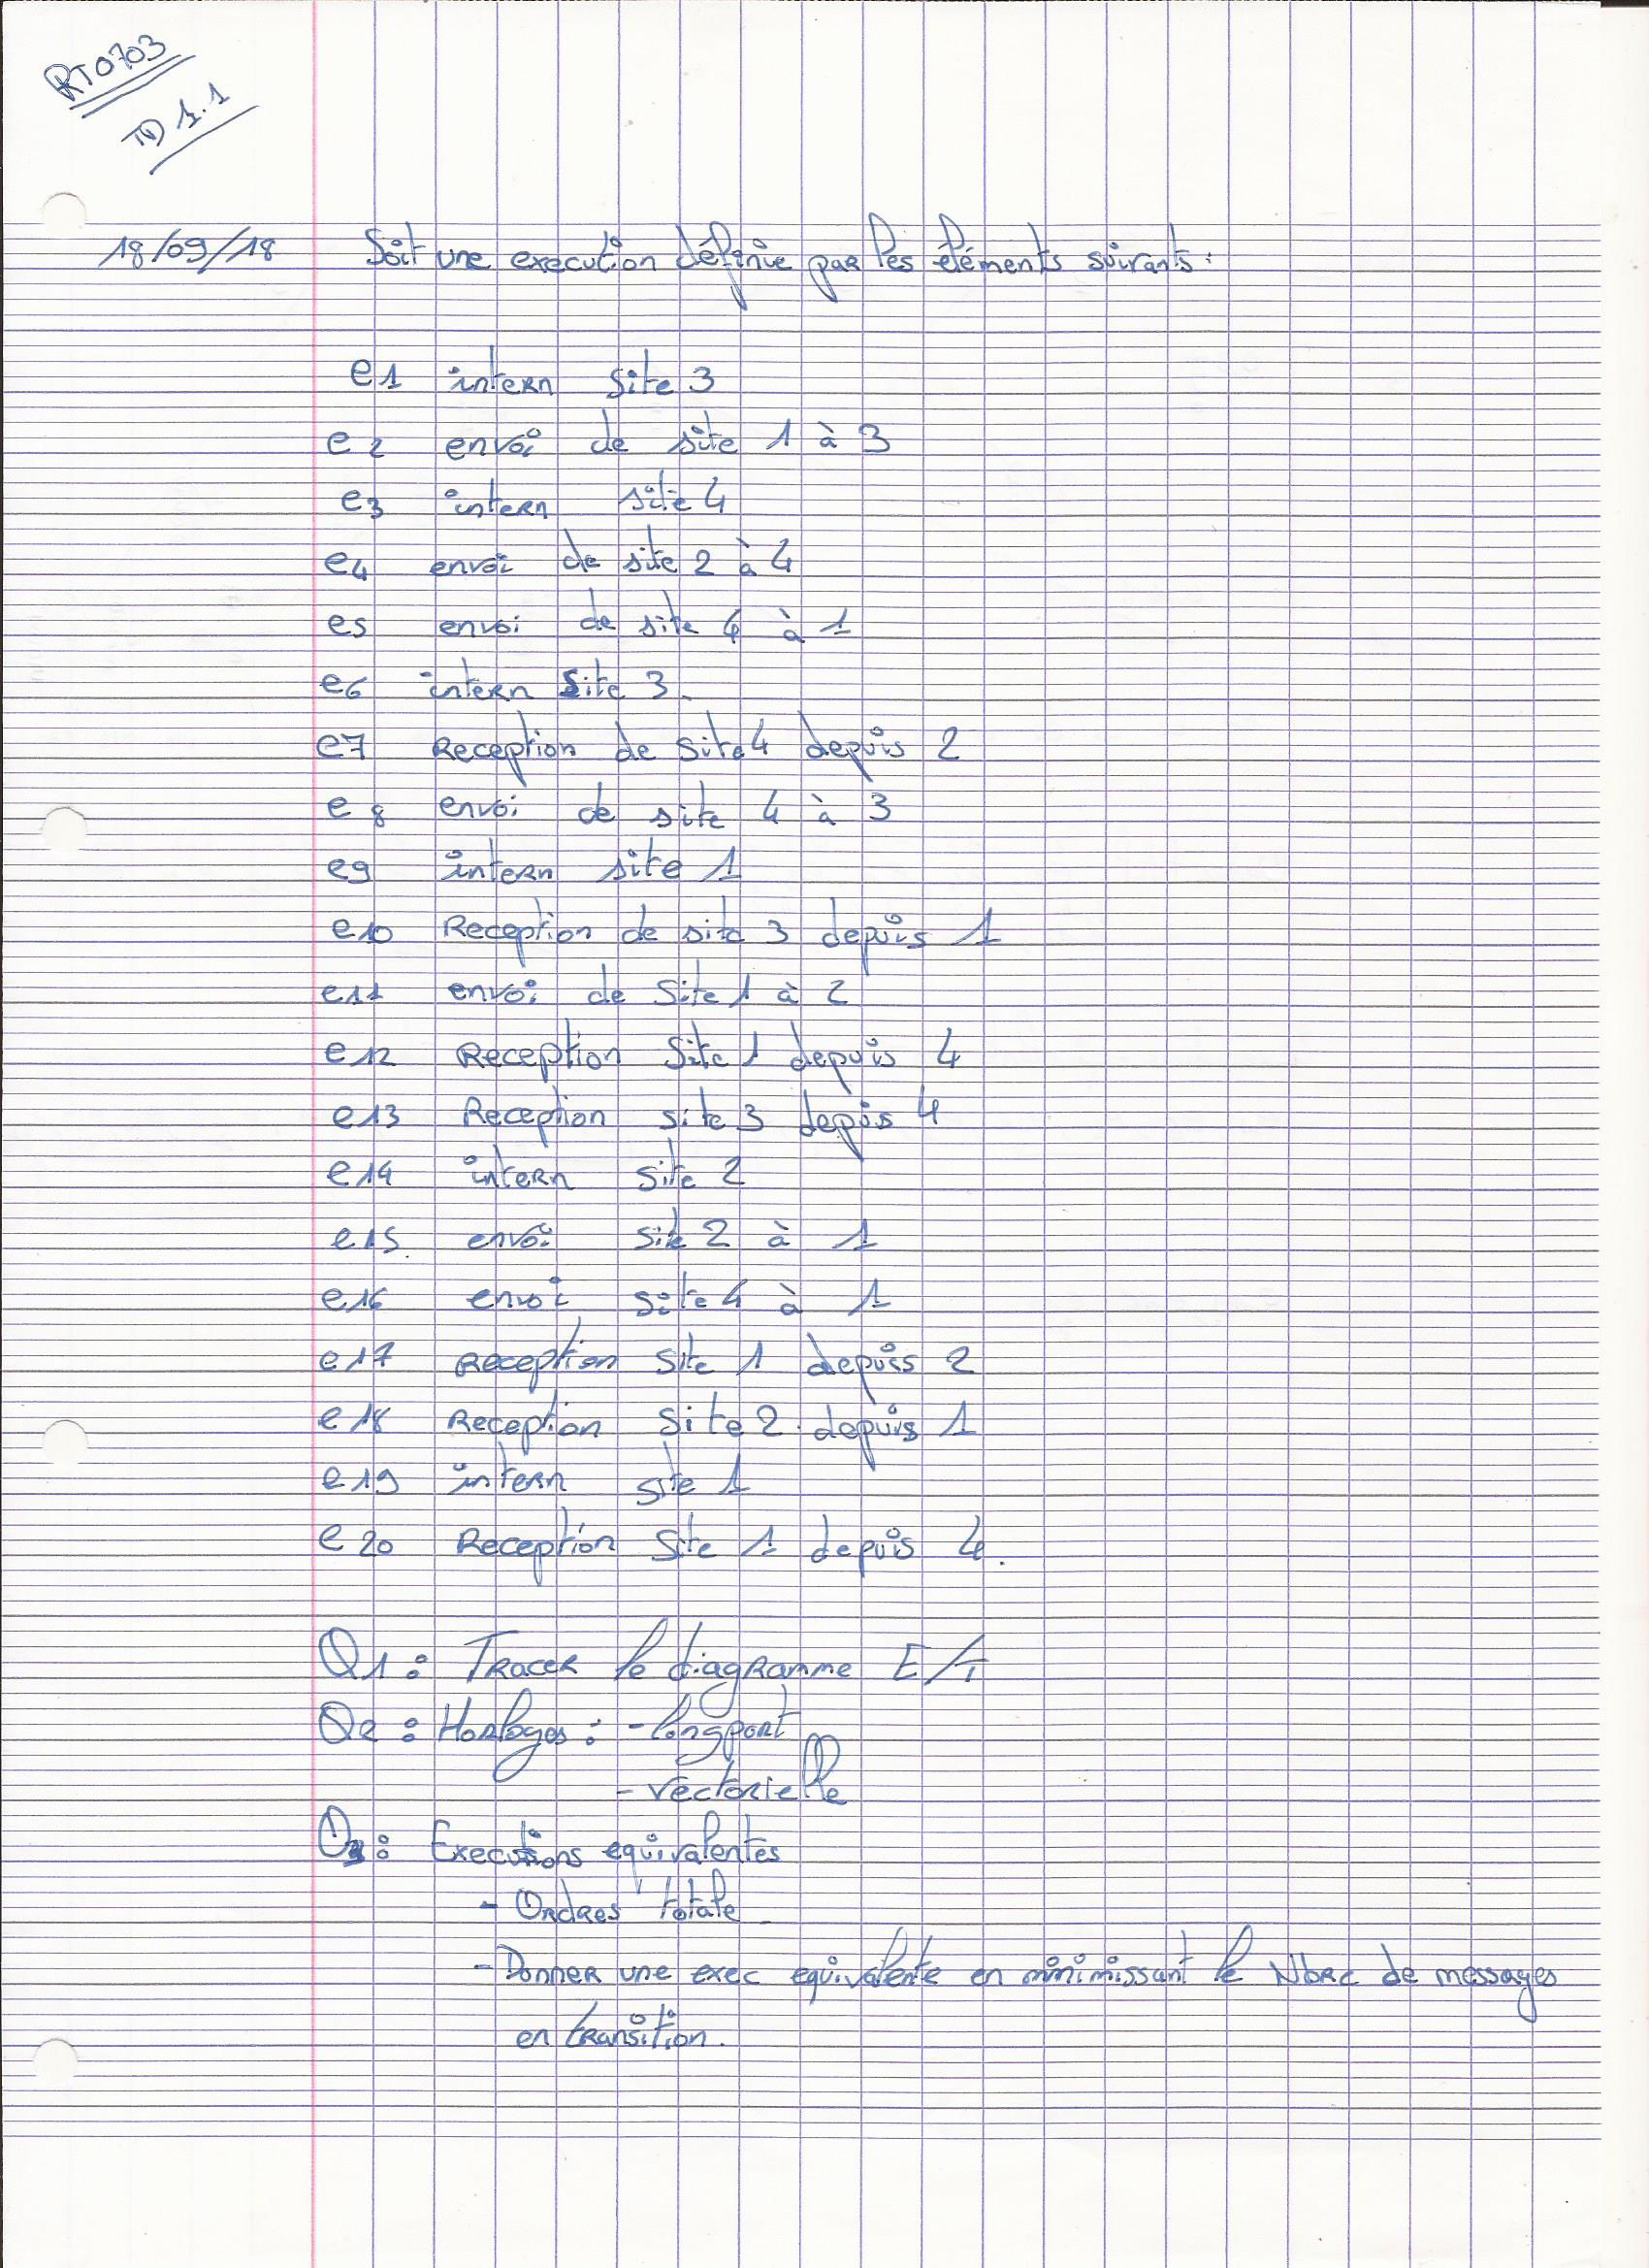 RT0703
TD 1.1
18/09/18 Soit une execution définie par les éléments suivants :
e1 intern Site 3
e2 envoi de site 1 à 3
e3 intern site 4
e4 envoi de site 2 à 4
e5 envoi de site 4 à 1
e6 intern Site 3.
e7 Reception de Site 4 depuis 2
e8 envoi de site 4 à 3
e9 intern site 1
e10 Reception de site 3 depuis 1
e11 envoi de Site 1 à 2
e12 Reception Site 1 depuis 4
e13 Reception site 3 depuis 4
e14 intern Site 2
e15 envoi site 2 à 1
e16 envoi site 4 à 1
e17 Reception Site 1 depuis 2
e18 Reception Site 2 depuis 1
e19 intern site 1
e20 Reception Site 1 depuis 4.
Q1 : Tracer le diagramme E/T
Q2 : Horloges : - longport
- vectorielle
Q3 : Executions equivalentes
- Ordres totale
- Donner une exec equivalente en minimissant le Nbre de messages
en transition.